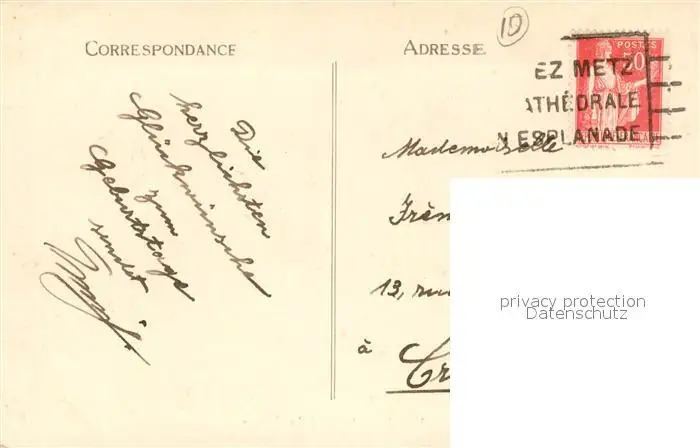 CORRESPONDANCE
ADRESSE
10
POSTES
50
EZ METZ
ATHÉDRALE
N ESPLANADE
Die
herzlichsten
Glückwünsche
zum
Geburtstage
sendet
Mademoiselle
Irèn
13, rue
à
Cr
privacy protection
Datenschutz